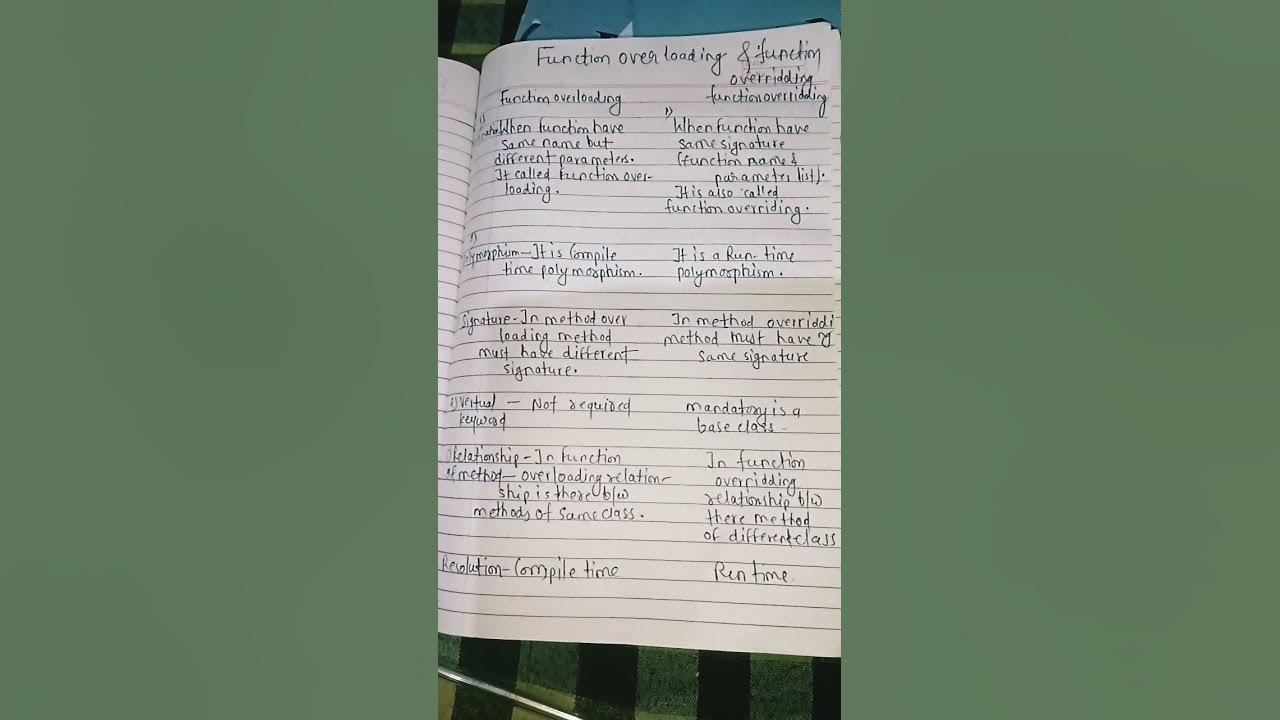 Function overloading & function
overridding
Function overloading functionoverridding
1) 1)
When function have When function have
same name but same signature
different parameters. (function name &
It called function over- parameter list).
loading. It is also called
function overriding.
2)
Polymorphism - It is Compile It is a Run-time
time polymorphism. polymorphism.
Signature - In method over In method overriddi
loading method method must have
must have different same signature
signature.
vertual - Not required mandatory is a
keyword base class -
Relationship - In function In function
of method - overloading relation- overridding
ship is there b/w relationship b/w
methods of same class. there method
of different class
Resolution - Compile time Run time.